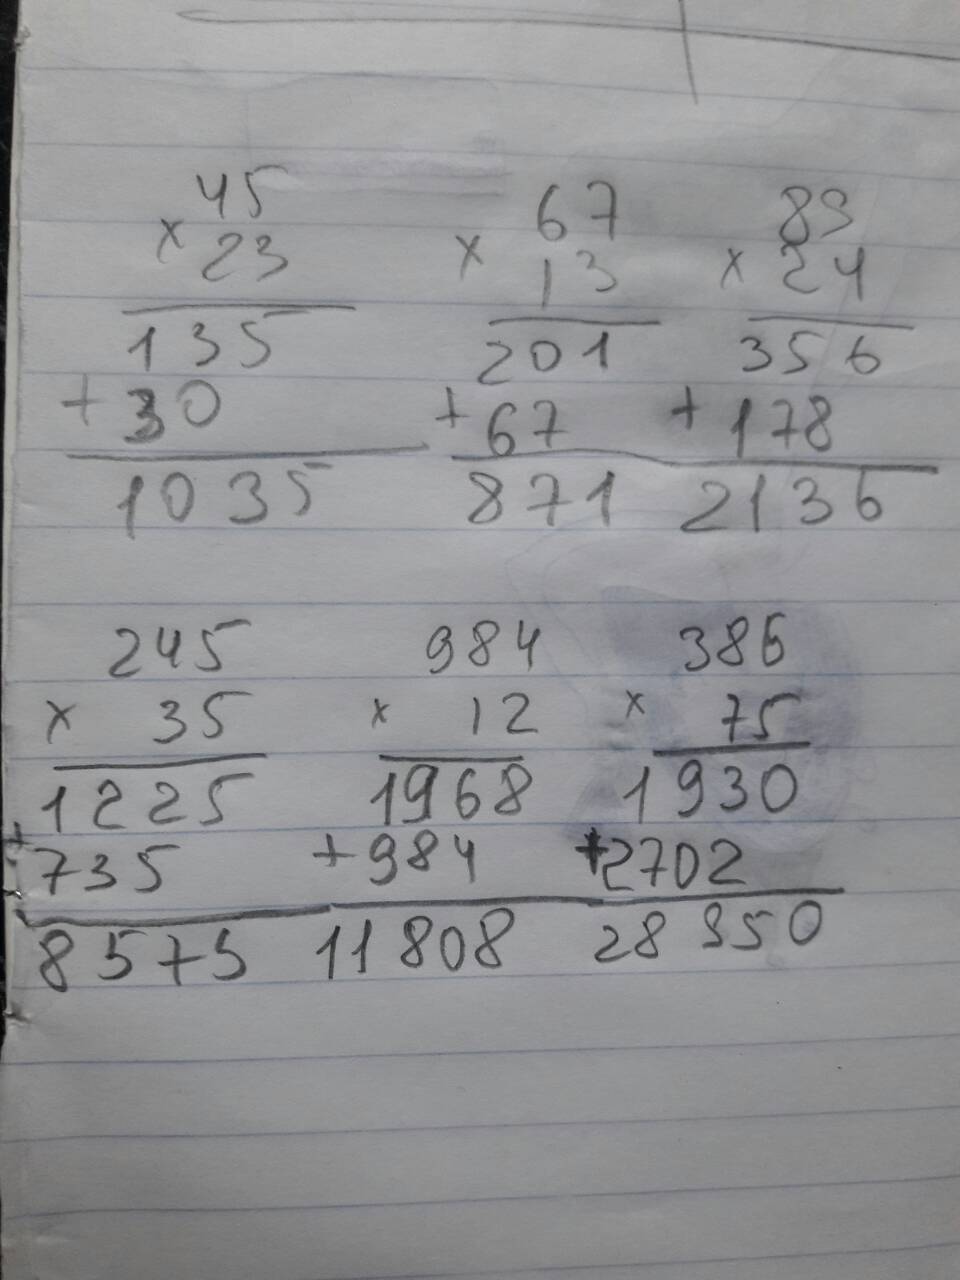 45 67 89
× 23 × 13 × 24
135 201 356
+ 30 + 67 + 178
1035 871 2136
245 984 386
× 35 × 12 × 75
1225 1968 1930
+ 735 + 984 + 2702
8575 11808 28950